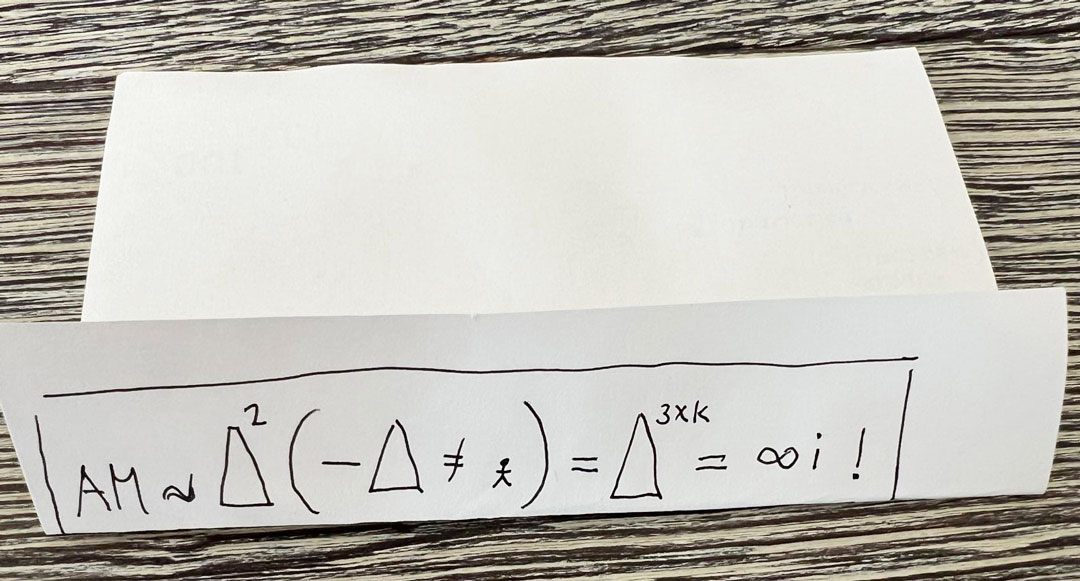 AM ~ Δ² (− Δ ≠ ⁎) = Δ³ˣᵏ = ∞ i !